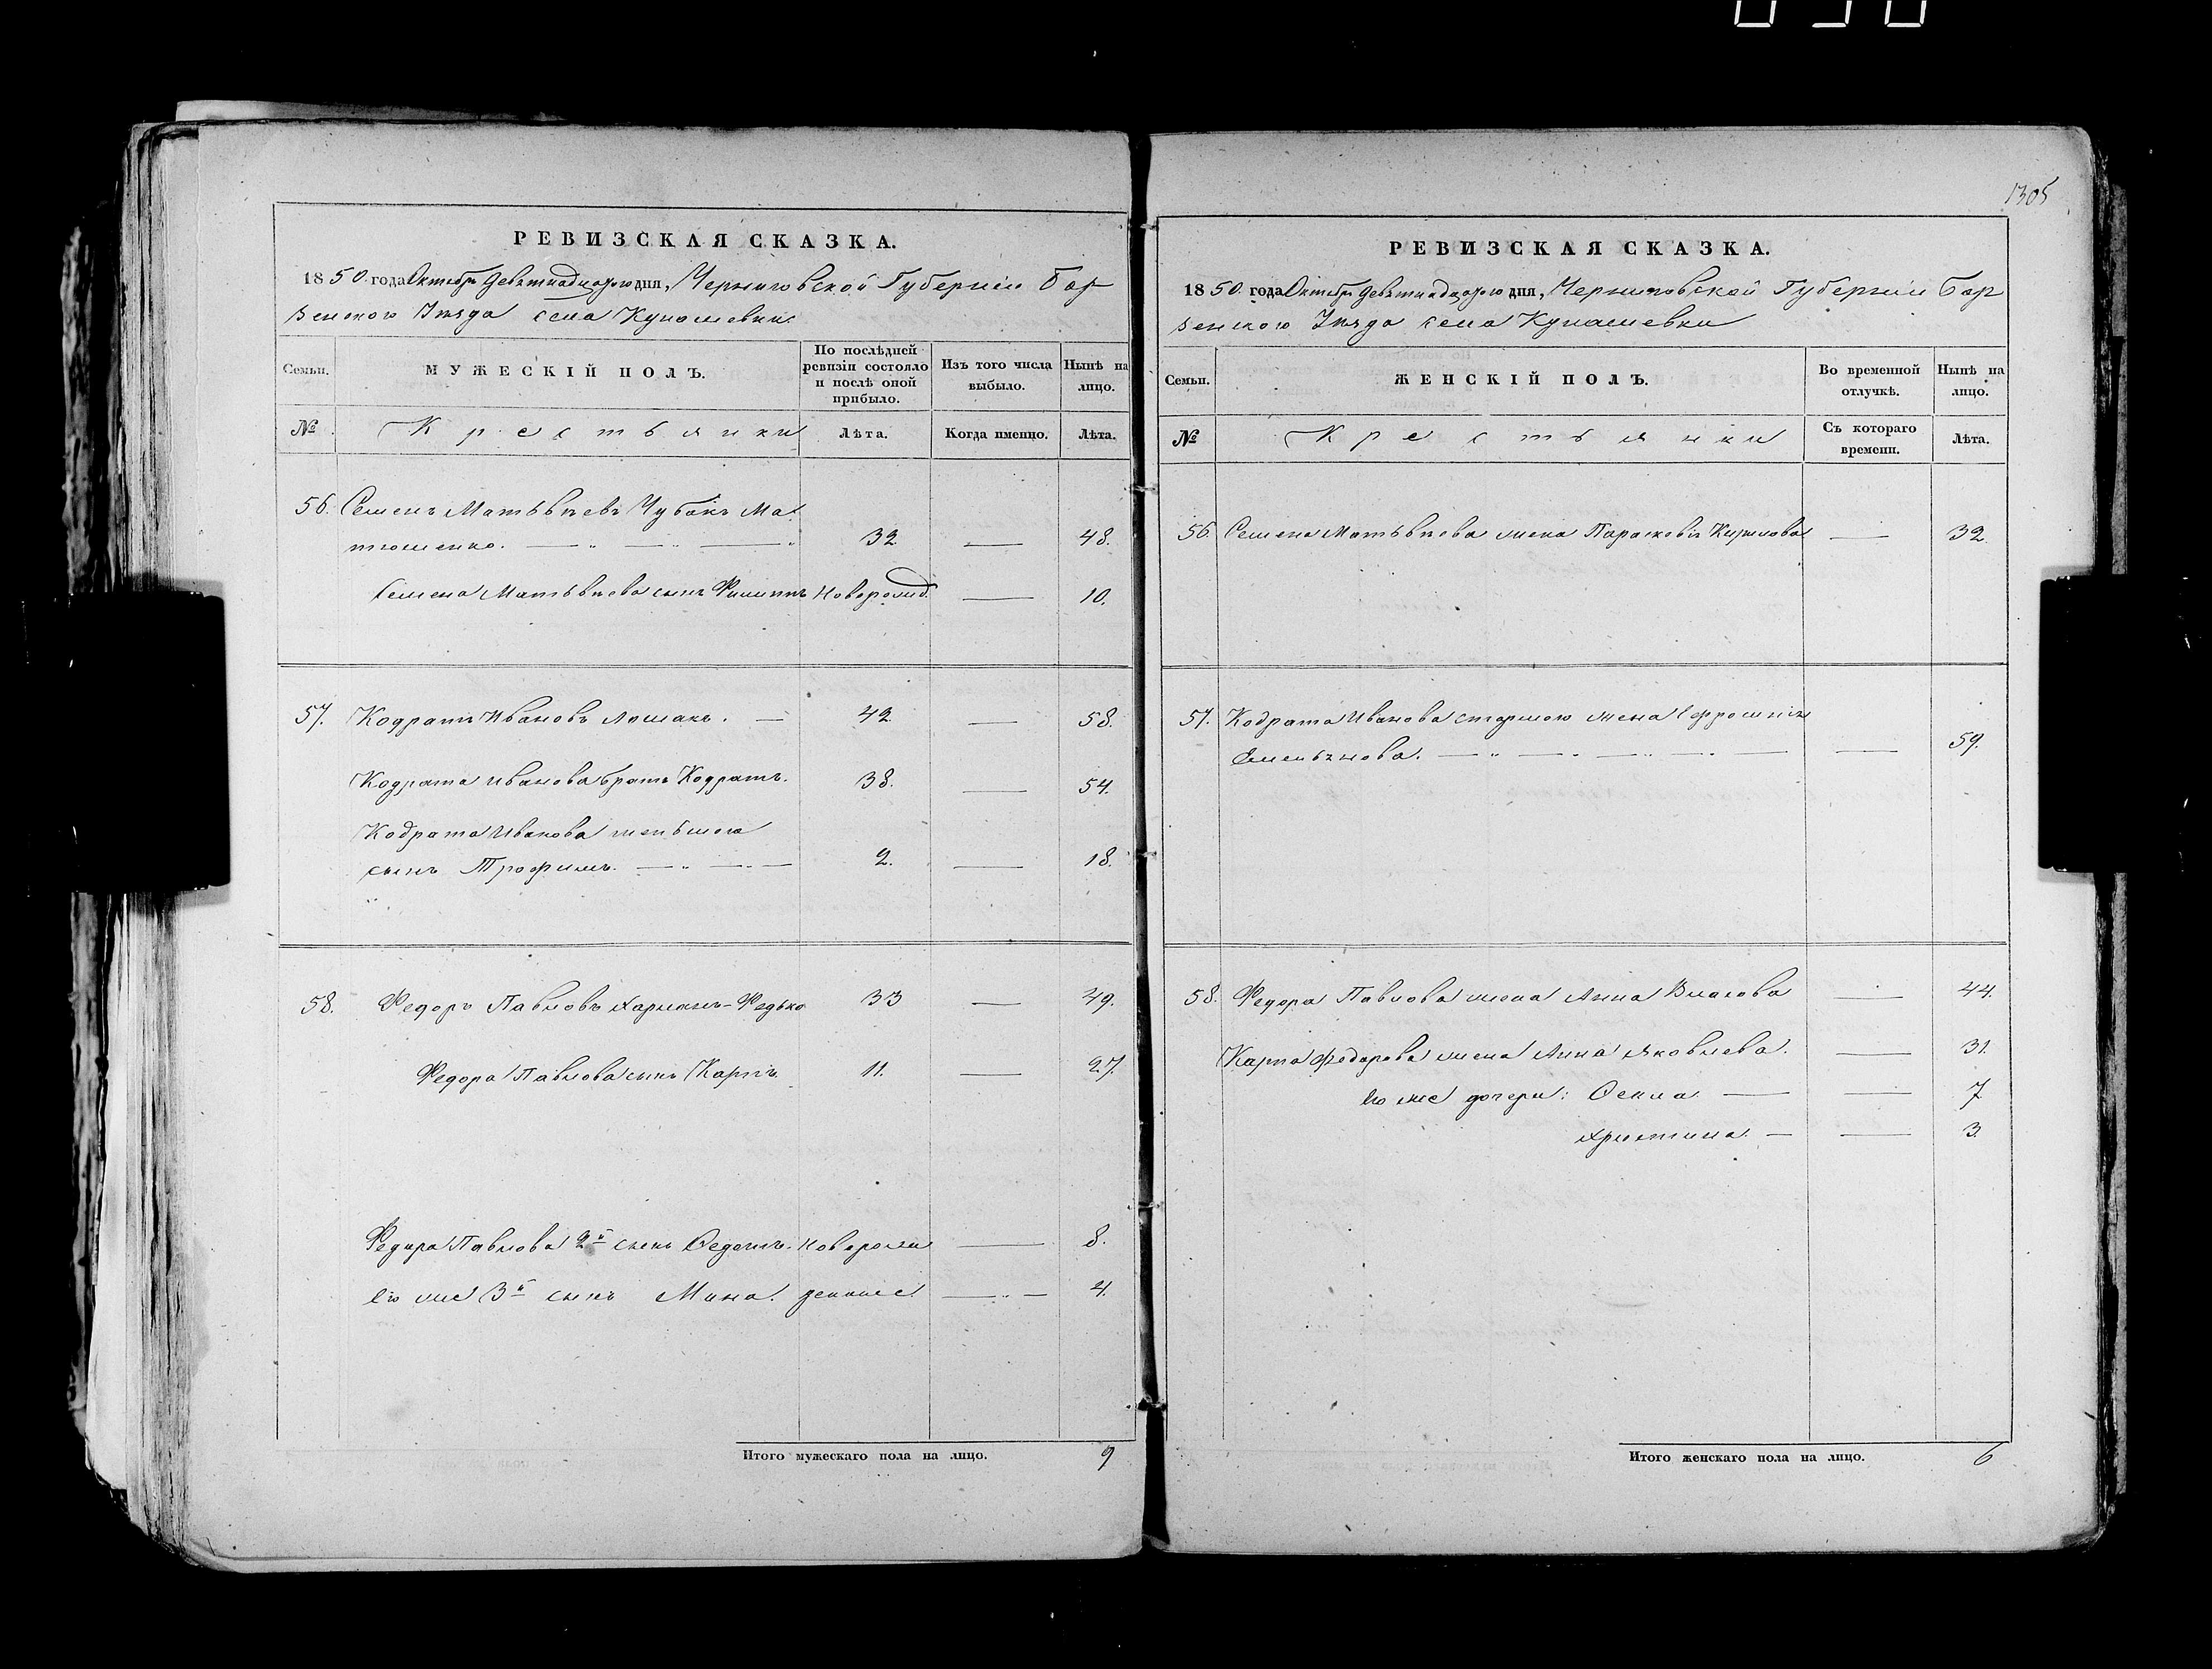 1305
РЕВИЗСКАЯ СКАЗКА.
1850. года Октября девятнадцатого дня, Черниговской Губернии Бор
зенского Уезда села Кунашевки.
Семьи. МУЖЕСКІЙ ПОЛЪ. По послѣдней ревизіи состояло и послѣ оной прибыло. Изъ того числа выбыло. Нынѣ на лицо.
№ Крестьянки Лѣта. Когда именно. Лѣта.
56. Семенъ Матьвѣевъ Чубакъ Ма
тюшенко. 32. — 48.
Семена Матьвѣева сынъ Филиппъ Новорожд. — 10.
57. Кодратъ Ивановъ Лошакъ. — 42. — 58.
Кодрата Иванова братъ Кодратъ. 38. — 54.
Кодрата Иванова меньшого
сынъ Трофимъ. 2. — 18.
58. Федоръ Павловъ Харланъ-Федько 33 — 49.
Федора Павлова сынъ Карпъ 11. — 27.
Федора Павлова 2й сынъ Новорож — 8.
Его же 3й сынъ Мина. денные — 4.
Итого мужескаго пола на лицо. 9
РЕВИЗСКАЯ СКАЗКА.
1850. года Октября девятнадцатого дня, Черниговской Губернии Бор
зенского Уезда села Кунашевки
Семьи. ЖЕНСКІЙ ПОЛЪ. Во временной отлучкѣ. Нынѣ на лицо.
№ Крестьянки Съ котораго времени. Лѣта.
56. Семена Матьвѣева жена Параскевія Кирилова — 32.
57. Кодрата Иванова старшого жена
Емельянова. — 59.
58. Федора Павлова жена Анна Власова — 44.
Карпа Федорова жена Анна Яковлева. — 31.
Его же дочери: Оенна — 7
Христина. — 3.
Итого женскаго пола на лицо. 6